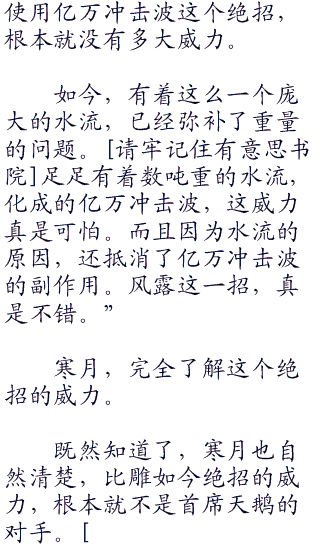 使用亿万冲击波这个绝招，
根本就没有多大威力。
如今，有着这么一个庞
大的水流，已经弥补了重量
的问题。[请牢记住有意思书
院]足足有着数吨重的水流，
化成的亿万冲击波，这威力
真是可怕。而且因为水流的
原因，还抵消了亿万冲击波
的副作用。风露这一招，真
是不错。”
寒月，完全了解这个绝
招的威力。
既然知道了，寒月也自
然清楚，比雕如今绝招的威
力，根本就不是首席天鹅的
对手。[